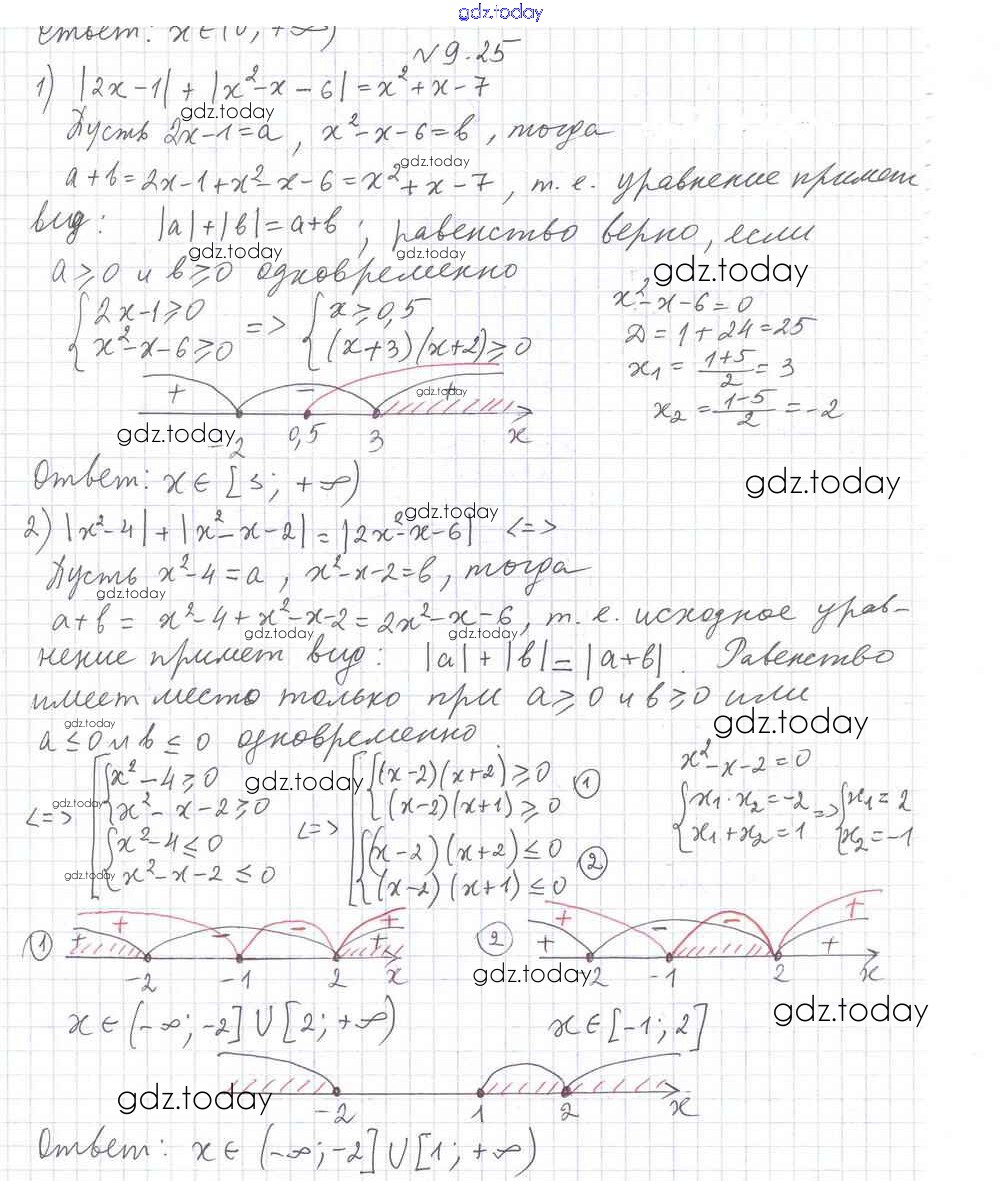 gdz.today
Ответ: x∈(0; +∞)
№9.25
1) |2x-1| + |x²-x-6| = x²+x-7
gdz.today
Пусть 2x-1=a, x²-x-6=b, тогда
gdz.today
a+b=2x-1+x²-x-6=x²+x-7, т.е. уравнение примет
вид: |a|+|b|=a+b; равенство верно, если
gdz.today gdz.today
a≥0 и b≥0 одновременно
gdz.today
{2x-1≥0 => {x≥0,5
{x²-x-6≥0 {(x+3)(x+2)≥0
x²-x-6=0
D=1+24=25
x₁=(1+5)/2=3
x₂=(1-5)/2=-2
+ - +
gdz.today
-2 0,5 3 x
gdz.today
Ответ: x∈[3; +∞)
gdz.today
gdz.today
2) |x²-4|+|x²-x-2|=|2x²-x-6| <=>
Пусть x²-4=a, x²-x-2=b, тогда
gdz.today
a+b= x²-4+x²-x-2=2x²-x-6, т.е. исходное урав-
gdz.today gdz.today
нение примет вид: |a|+|b|=|a+b|. Равенство
имеет место только при a≥0 и b≥0 или
gdz.today gdz.today
a≤0 и b≤0 одновременно.
gdz.today
<=> [{x²-4≥0 <=> [{(x-2)(x+2)≥0 ①
{x²-x-2≥0 {(x-2)(x+1)≥0
gdz.today
{x²-4≤0 {(x-2)(x+2)≤0 ②
{x²-x-2≤0 {(x-2)(x+1)≤0
gdz.today
x²-x-2=0
{x₁·x₂=-2 => {x₁=2
{x₁+x₂=1 {x₂=-1
① + + - - + +
-2 -1 2 x
② + + - - + +
gdz.today
-2 -1 2 x
x∈(-∞; -2]∪[2; +∞) x∈[-1; 2]
gdz.today
gdz.today
-2 1 2 x
Ответ: x∈(-∞; -2]∪[1; +∞)